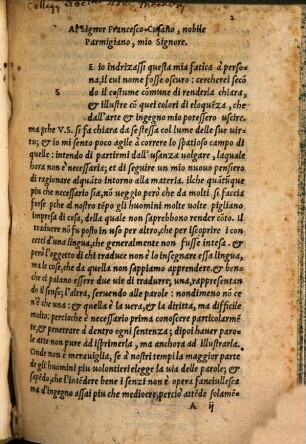 Al Signor Francesco Cusano, nobile
Parmigiano, mio Signore.
E io indrizassi questa mia fatica à perso
na, il cui nome fosse oscuro: cercherei secō
do il costume cōmune di renderla chiara,
& illustre cō quei colori di eloquēza, che
dall'arte & ingegno mio potessero uscire.
ma che V.S. si fa chiara da se stessa col lume delle sue uir
tu; & io mi sento poco agile à correre lo spatioso campo di
quelle: intendo di partirmi dall'usanza uolgare, laquale
hora non è necessaria; et di seguire un mio nuouo pensiero
di ragionare alquāto intorno alla materia. ilche quātūque
piu che necessario sia, nō ueggio però che da molti si faccia
forse pche al nostro tēpo gli huomini molte uolte pigliano
impresa di cosa, della quale non saprebbono render cōto. il
tradurre nō fu posto in uso per altro, che per iscoprire i con
cetti d'una lingua, che generalmente non fusse intesa. &
però l'oggetto di chi traduce non è lo insegnare essa lingua,
ma le cose, che da quella non sappiamo apprendere. & ben
che ci paiano essere due uie di tradurre; una, rappresentan
do il senso; l'altra, seruendo alle parole: nondimeno nō ce
n'è che una: & quella è la uera, & la diritta, ma difficile
molto: percioche è necessario prima conoscere particolarmē
te, & penetrare à dentro ogni sentenza; dipoi hauer paro-
le atte non pure ad isprimerla, ma anchora ad illustrarla.
Onde non è merauiglia, se à nostri tempi la maggior parte
de gli huomini piu uolontieri elegge la uia delle parole; &
sapēdo, che l'intēdere bene i sensi non è opera fanciullesca
ma d'ingegno assai piu che mediocre, perciò attēde solamē-
A ij